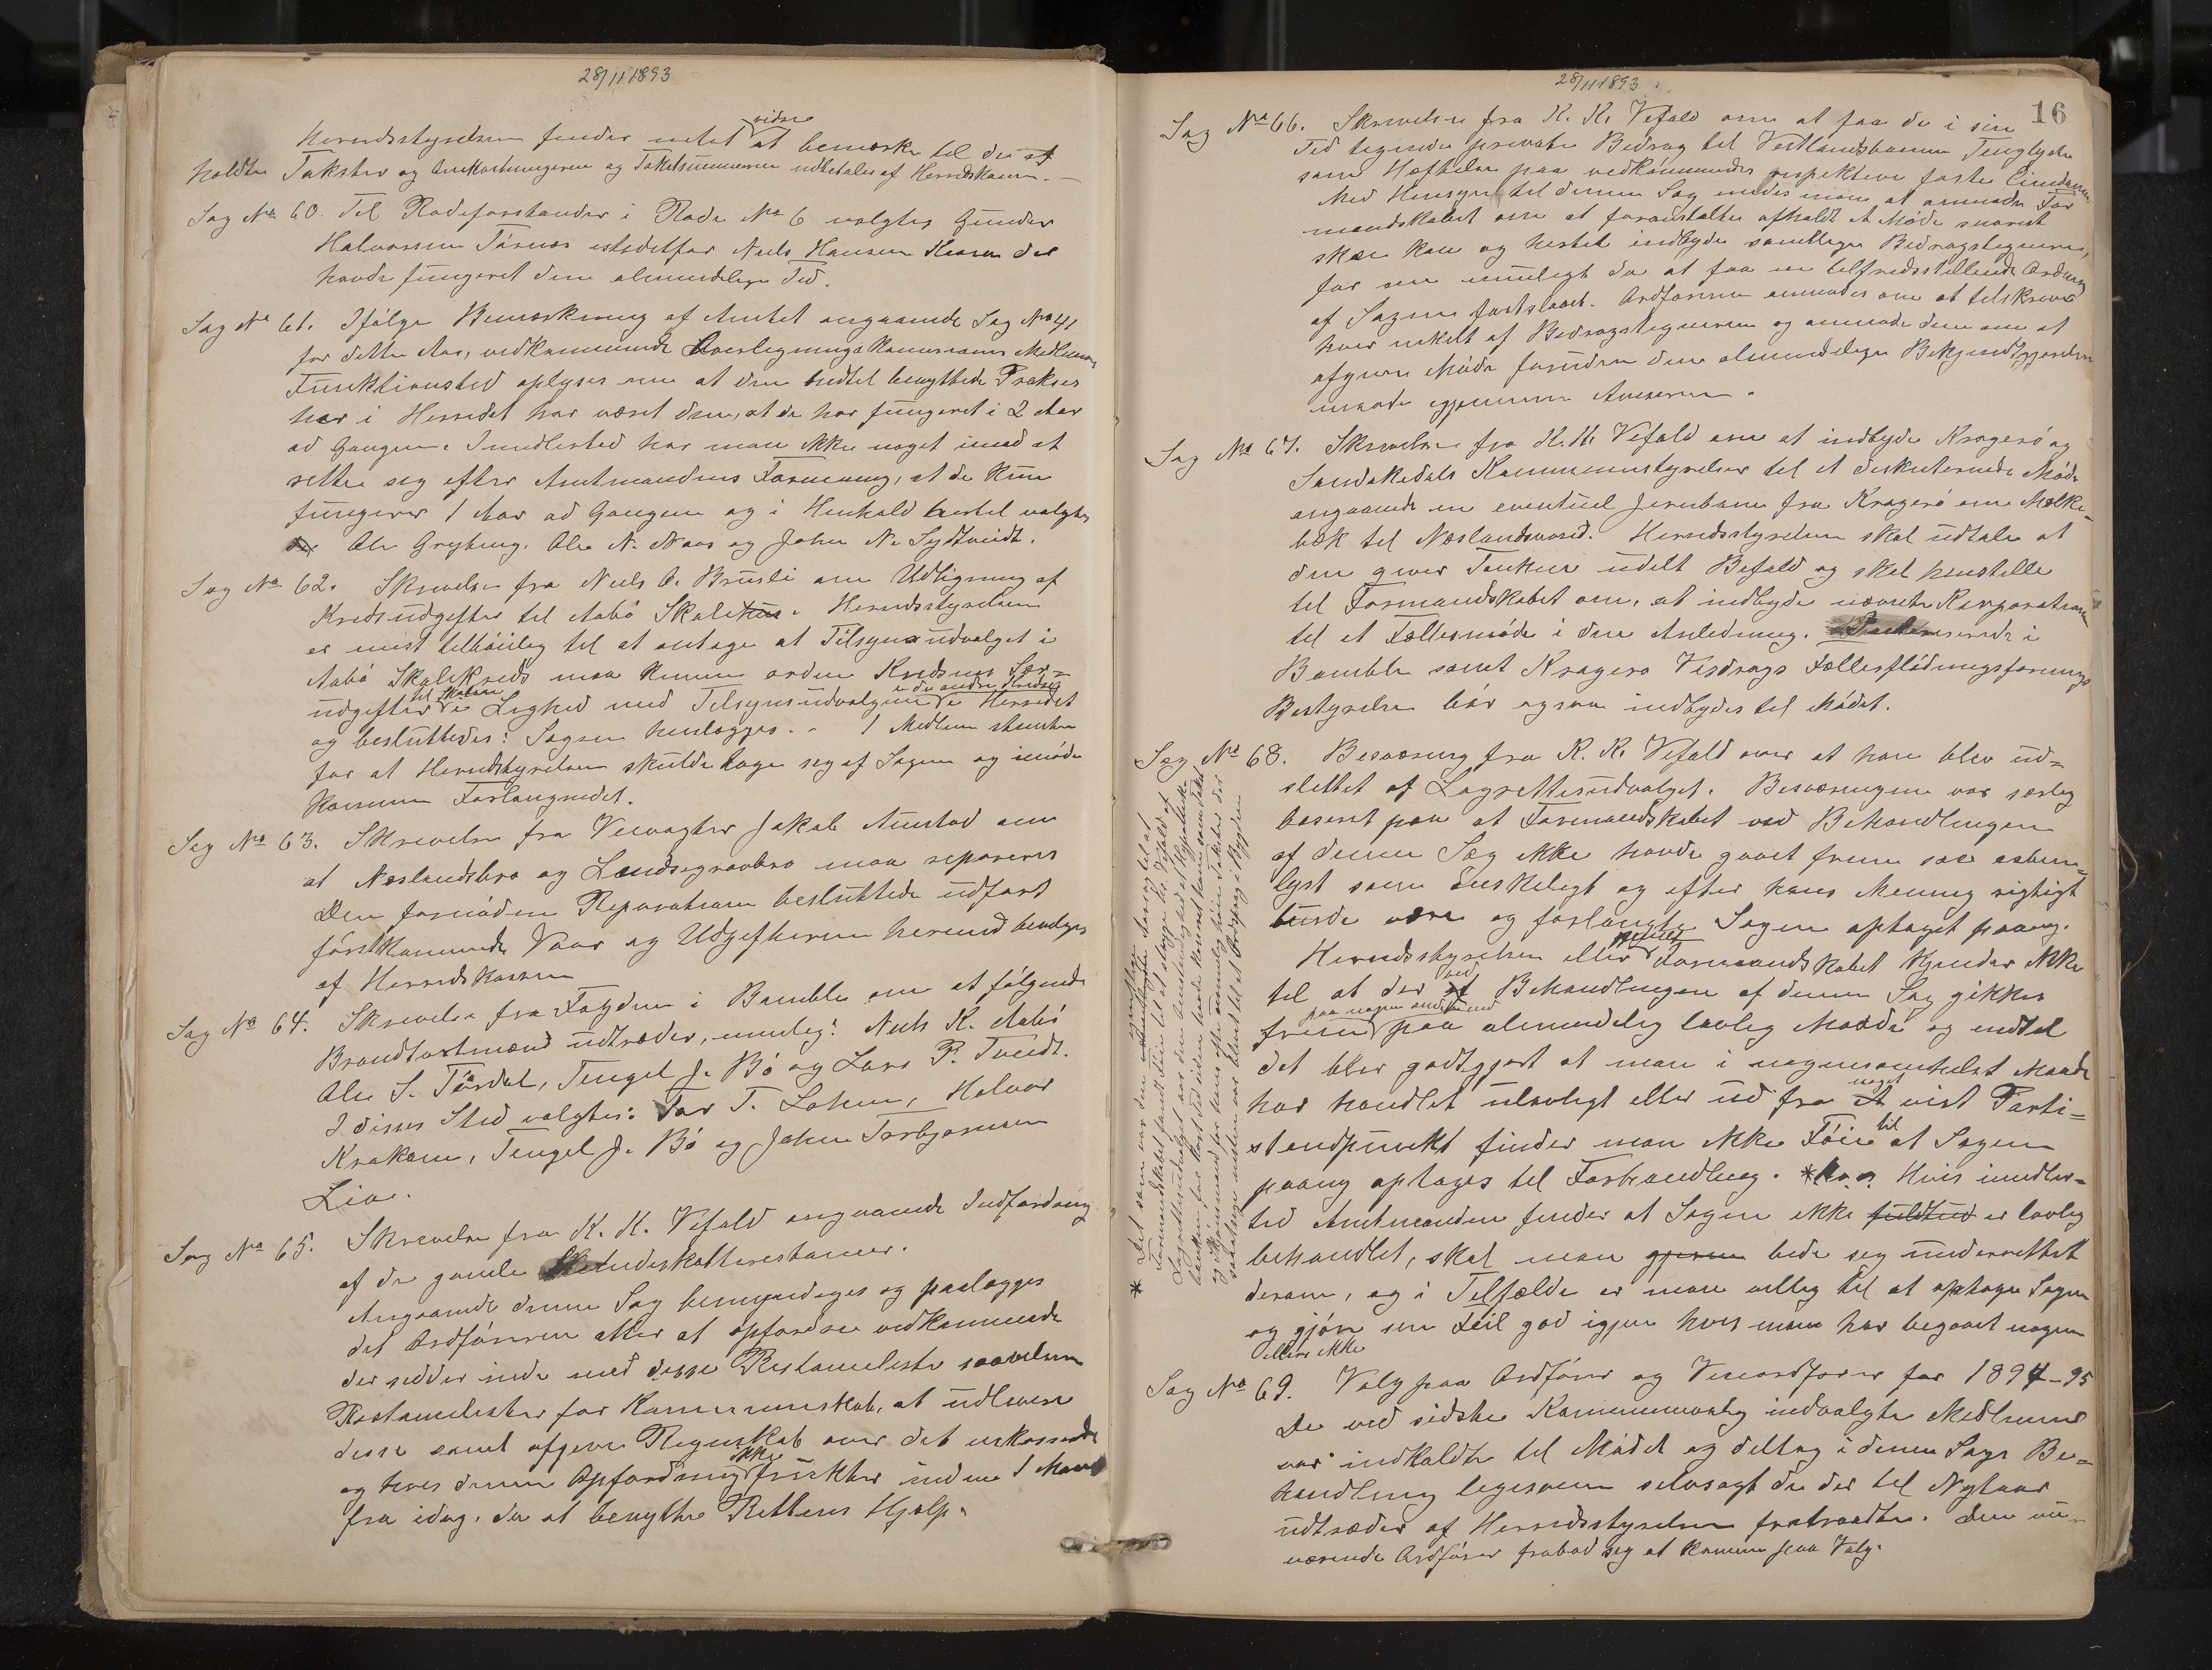 28/11 1893
Herredsstyrelsen finder intet vidre at bemærke til de af
holdte Takster og Omkostningerne og Takstsummerne udbetales af Herredskassen. –
Sag No 60. Til Rodeforstander i Rode No 6 valgtes Gunder
Halvorsen Tórnes istedetfor Niels Hansen der
havde fungeret den almindelige Tid.
Sag No 61. Ifólge Bemærkning af Amtet angaaende Sag No 41
for dette Aar, vedkommende Overligningskommissionens Medlemmers
Funktionstid oplyses om at den indtil benyttede Praksis
her i Herredet har været den, at de har fungeret i 2 Aar
ad Gangen. Imidlertid har man ikke noget imod at
rette seg efter Amtmandens Formening, at de kun
fungerer 1 Aar ad Gangen og i Henhold hertil valgtes
Ole Gryting, Ole N. Naas og John N. Sydtveidt.
Sag No 62. Skrivelse fra Niels O. Brusli om Udligning af
Kredsudgifter til Aabó Skolekres. Herredsstyrelsen
er mest tilbóielig til at antage at Tilsynsudvalget i
Aabó Skolekreds maa kunne ordne Kredsens Sær-
udgifter til Skolen i Lighed med Tilsynsudvalgene i de andre Kredse i Herredet
og besluttedes: Sagen henlægges. – 1 Medlem stemte
for at Herredstyrelsen skulde tage seg af Sagen og imóde
komme Forlangendet.
Sag No 63. Skrivelse fra Veivogter Jakob Aanstad om
at Neslandsbro og Landsgravbro maa repareres
Den fornódne Reparation besluttede udfórt
fórstkommende Vaar og Udgifterne herved bevilges
af Herredskassen
Sag No 64. Skrivelse fra Fogden i Bamble om at fólgende
Brandtaxtmænd udtræder, nemlig: Niels K. Aabó
Ole S. Tórdal, Tengel J. Bó og Lars P. Tveidt.
I disses Sted valgtes: Tor T. Lohne, Halvor
Krokene, Tengel J. Bó og John Torbjornsen
Lio.
Sag No 65. Skrivelse fra K. K. Vefald angaaende Indfordring
af de gamle skatterestancer.
Angaaende denne Sag bemyndiges og paalægges
det Ordfóreren atter at opfordre vedkommende
der sidder inde med disse Restancelister saavelsom
Restancelister for Kommuneskat, at udlevere
disse samt afgive Regnskab over det inkasserede
og hvis denne Opfordring ikke frukter inden 1 Maaned
fra idag, da at benytte Rettens Hjælp.
28/11 1893
16
Sag No 66. Skrivelse fra K. K. Vefald om at faa de i sin
Tid tegnede private Bidrag til Vestlandsbanen Tinglyste
som Hæftelse paa vedkómmendes respektive faste Eiendomme
Med Hensyn til denne Sag enedes man at anmode For
mandskabet om at foranstalte afholdt et Móde snarest
skee kan og hertil indbyde samtlige Bidragstegnere,
for om muligt da at faa en tilfredsstillende Ordning
af Sagen fastslaaet. Ordfóreren anmodes om at tilskrive
hver enkelt af Bidragstegnerne og anmode dem om at
afgive Móde foruden den almindelige Bekjendtgjórelses
maade gjennem Aviserne.
Sag No 67. Skrivelse fra K. K. Vefald om at indbyde Kragerø og
Sandøkedals Kommunestyrelser til et diskuterende Móde
angaaende en eventuel Jernbane fra Kragerø om Mælke-
bæk til Neslandsvand. Herredsstyrelsen skal udtale at
den giver Tanken udelt Bifald og skal henstille
til Formandskabet om, at indbyde nævnte Korporationer
til et Fællesmóde i den Anledning. i
Bamble samt Kragerø Vasdrags Fællesflódningsforenings
Bestyrelse bór ogsaa indbydes til Mødet.
Sag No 68. Besværing fra K. K. Vefald over at han blev ud-
slettet af Lagretteudvalget. Besværingen var særlig
baseret paa at Formandskabet ved Behandlingen
af denne Sag ikke havde gaaet frem saa
som ónskeligt og efter hans Mening rigtigt
burde være og forlangte Sagen optaget paany.
Herredsstyrelsen eller Formandskabet kjender ikke
til at der ved Behandlingen af denne Sag gikkes
frem paa nogen anden end paa almindelig lovlig Maade og indtil
det blev godtgjort at man i nogensomhelst Maade
har handlet ulovligt eller ud fra noget vist Parti-
standpunkt finder man ikke Fóie til at Sagen
paany optages til Forhandling. * Hvis imidler-
tid Amtmanden finder at Sagen ikke fuldtud er lovlig
behandlet, skal man gjerne bede seg underrettet
derom, og i Tilfælde er man villig til at optage Sagen
og gjóre sin Feil god igjen hvis man har begaaet nogen
ellers ikke
* Det som var den egentlige Aarsag til at
Formandskabet fandt Föie til at stryge Hr. Vefald af
Lagretteudvalget var den
Sag No 69. Valg paa Ordfórer og Viceordfører for 1894–95
De ved sidste Kommunevalg indvalgte Medlemmer
var indkaldte til Mødet og deltog i denne Sags Be-
handling ligesom selvsagt de der til Nytaar
udtræder af Herredsstyrelsen fratraadte. Den nu-
værende Ordfører frabad seg at komme paa Valg.